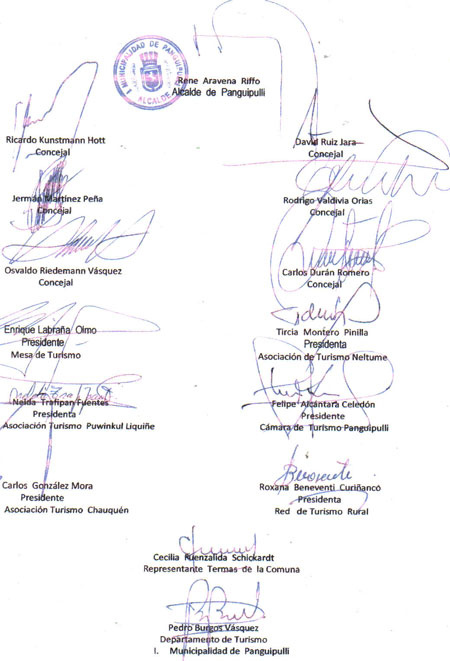 I MUNICIPALIDAD DE PANGUIPULLI
ALCALDE
Rene Aravena Riffo
Alcalde de Panguipulli
Ricardo Kunstmann Hott
Concejal
David Ruiz Jara
Concejal
Jermán Martínez Peña
Concejal
Rodrigo Valdivia Orias
Concejal
Osvaldo Riedemann Vásquez
Concejal
Carlos Durán Romero
Concejal
Enrique Labraña Olmo
Presidente
Mesa de Turismo
Tircia Montero Pinilla
Presidenta
Asociación de Turismo Neltume
Nelda Trafipan Fuentes
Presidenta
Asociación Turismo Puwinkul Liquiñe
Felipe Alcántara Celedón
Presidente
Cámara de Turismo Panguipulli
Carlos González Mora
Presidente
Asociación Turismo Chauquén
Roxana Beneventi Curiñancó
Presidenta
Red de Turismo Rural
Cecilia Fuenzalida Schickardt
Representante Termas de la Comuna
Pedro Burgos Vásquez
Departamento de Turismo
I. Municipalidad de Panguipulli